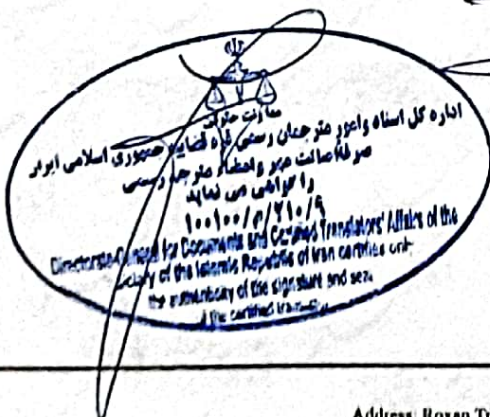 معاونت حقوقی
اداره کل اسناد و امور مترجمان رسمی قوه قضاییه جمهوری اسلامی ایران
صرفا اصالت مهر و امضاء مترجم رسمی
را گواهی می نماید
۱۰۰۱۰۰/م/۲۱۰/۹
Directorate General for Documents and Certified Translators' Affairs of the
Judiciary of the Islamic Republic of Iran certifies only
the authenticity of the signature and seal
of the certified translator
Address